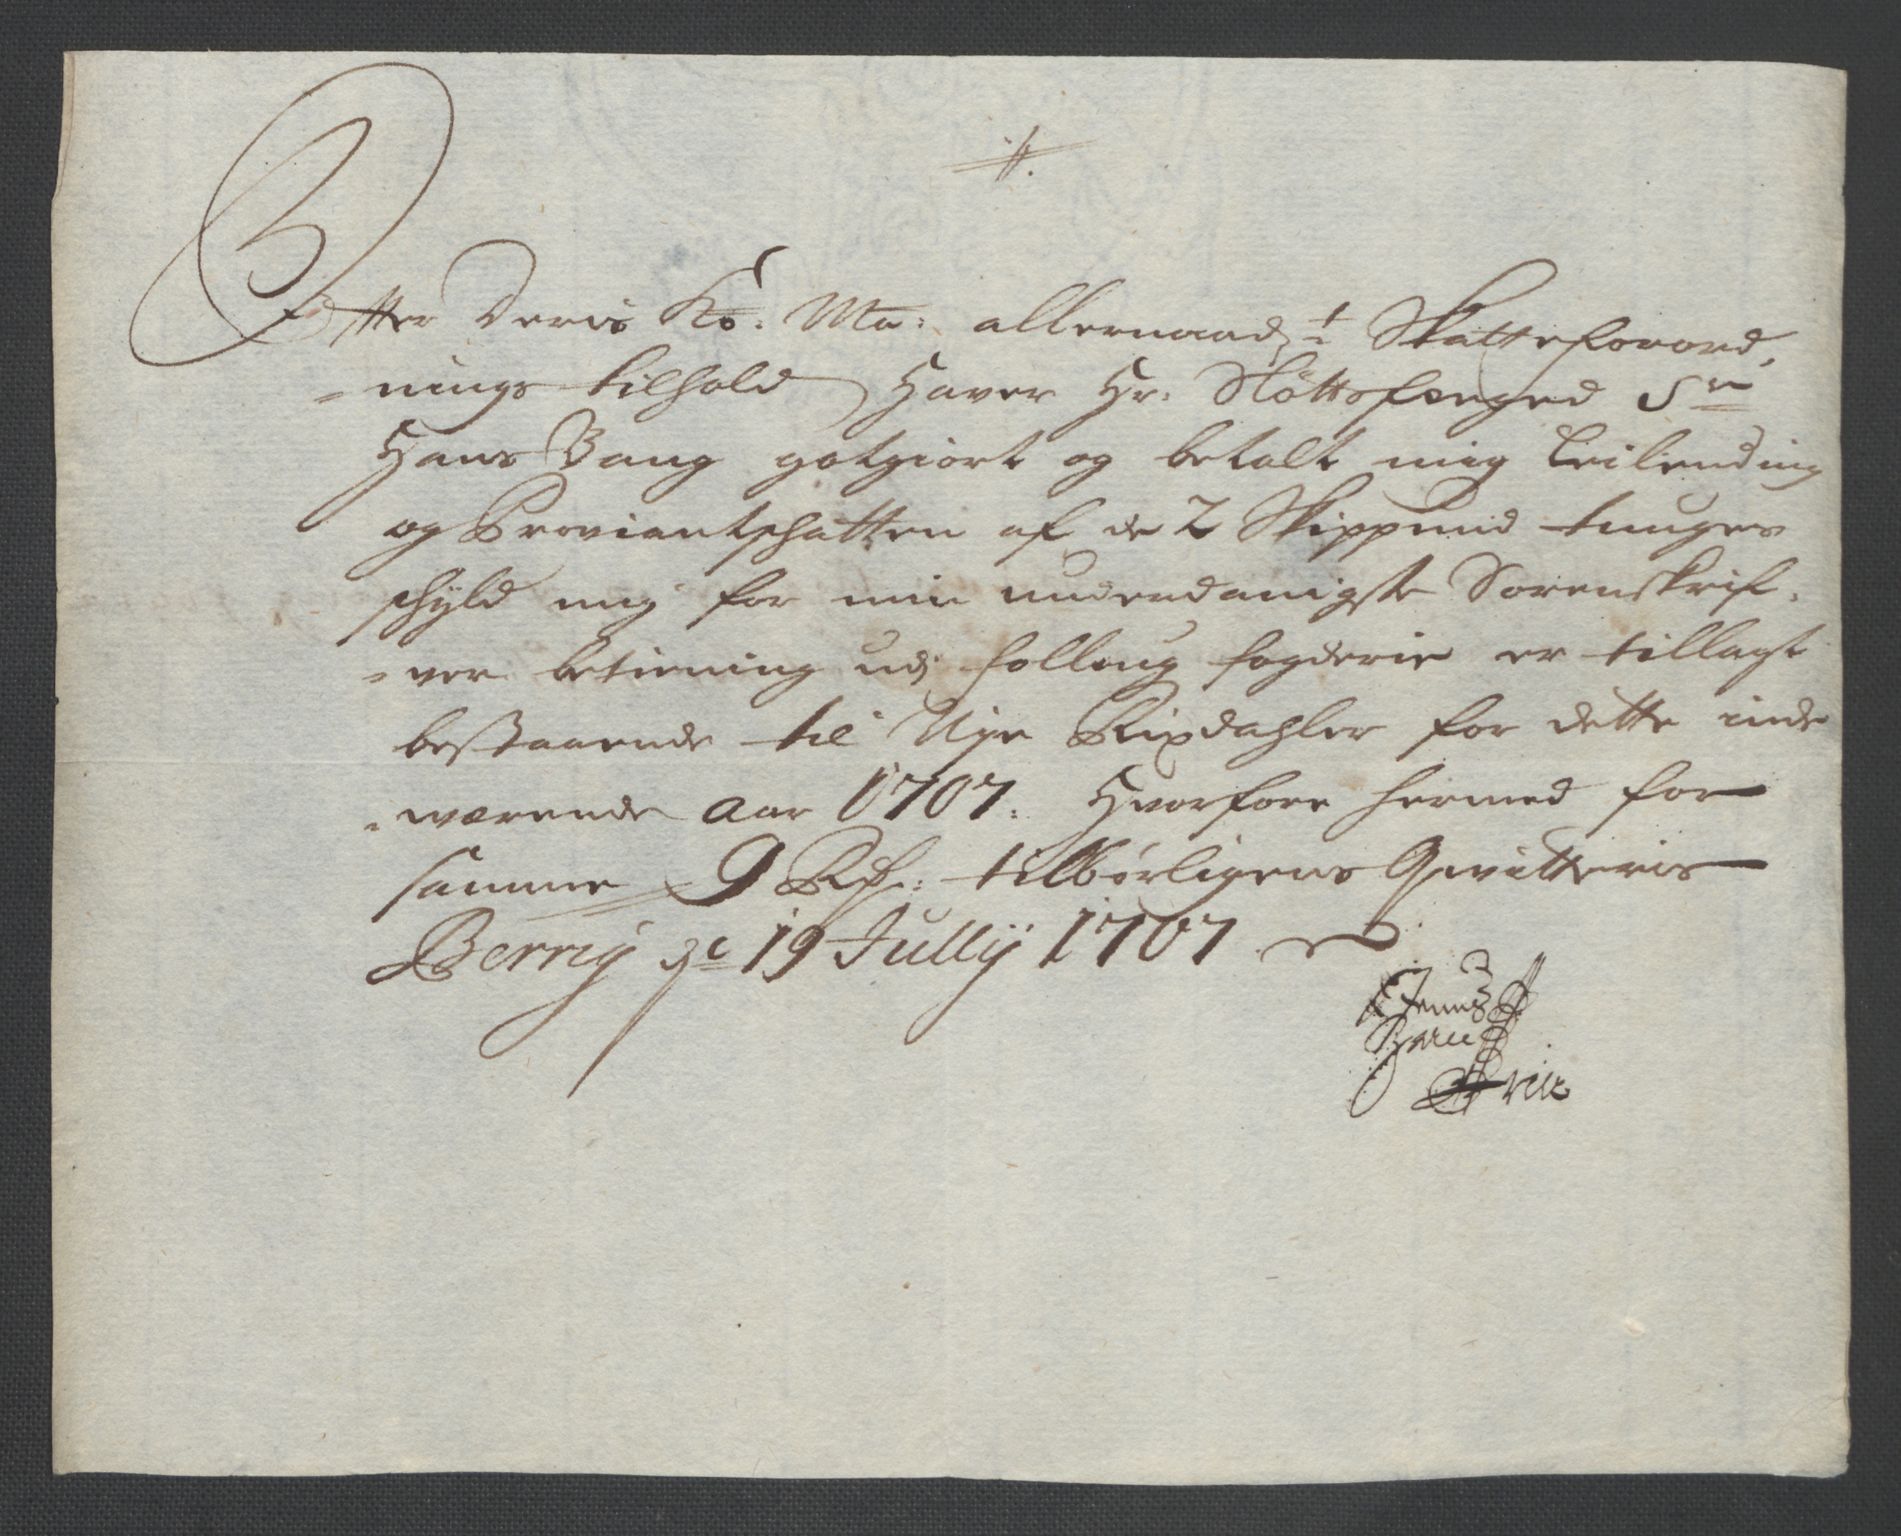 Efter Deris Ko: Ma: allernaadst Skatteforord,
-nings tilhold Haver Hr: Slottsfoeged Sr
Hans Bang gotgiort og betalt mig Leilending
og Proviantschatten af de 2 Skippund tunges
schyld mig for min underdanigste Sorenskrif,
-ver betiening udj folloug fogderie er tillagt
bestaaende til Nije Rixdahler for dette inde
-werende Aar 1707: Hvorfore hermed for
samme 9 Rd: tilbörligens Qvitteris
Berrig de 19 Jullij 1707